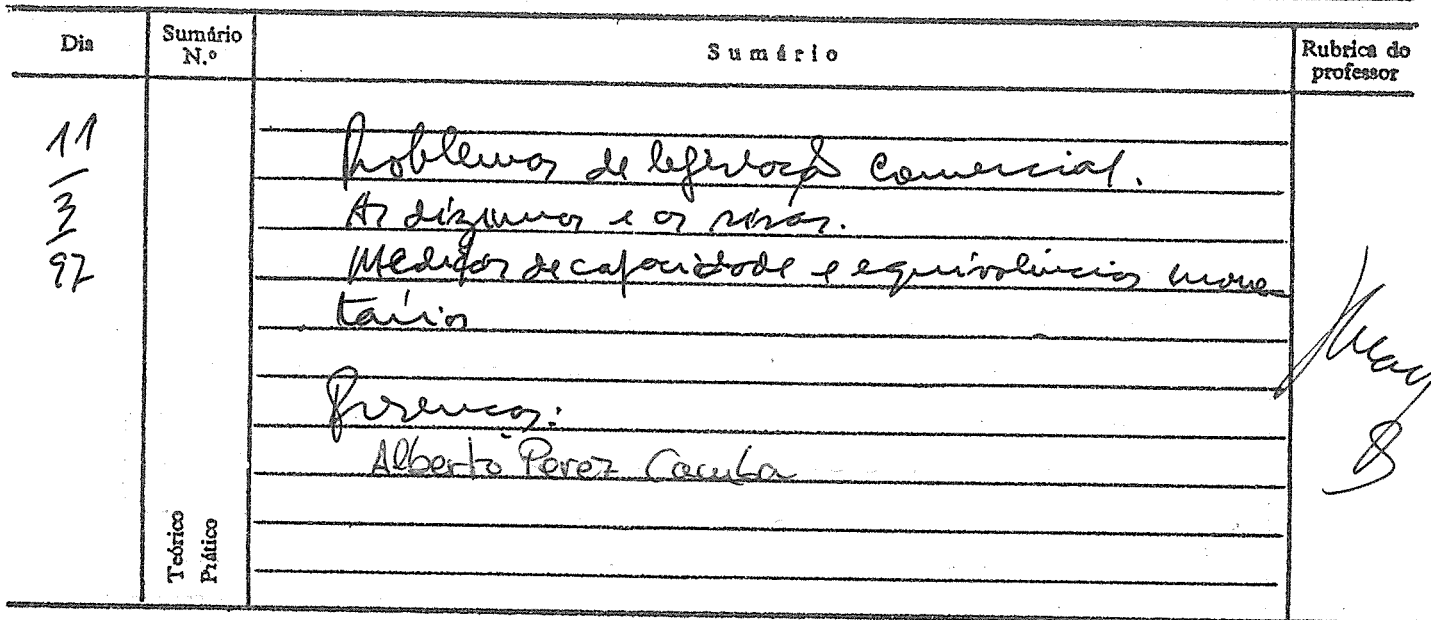 Dia
Sumário N.º
Sumário
Rubrica do professor
11
3
97
Problemas de legislação Comercial.
As dízimas e as sisas.
Medidas de capacidade e equivalências mone-
tárias
Presenças:
Alberto Perez
Teórico
Prático